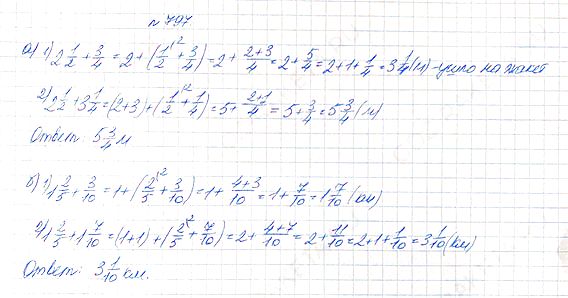 № 797
а) 1) 2 1/2 + 3/4 = 2 + (1/2 + 3/4) = 2 + (2+3)/4 = 2 + 5/4 = 2 + 1 + 1/4 = 3 1/4 (м) - ушло на жакет
2) 2 1/2 + 3 1/4 = (2+3) + (1/2 + 1/4) = 5 + (2+1)/4 = 5 + 3/4 = 5 3/4 (м)
Ответ: 5 3/4 м
б) 1) 1 2/5 + 3/10 = 1 + (2/5 + 3/10) = 1 + (4+3)/10 = 1 + 7/10 = 1 7/10 (км)
2) 1 2/5 + 1 7/10 = (1+1) + (2/5 + 7/10) = 2 + (4+7)/10 = 2 + 11/10 = 2 + 1 + 1/10 = 3 1/10 (км)
Ответ: 3 1/10 км.